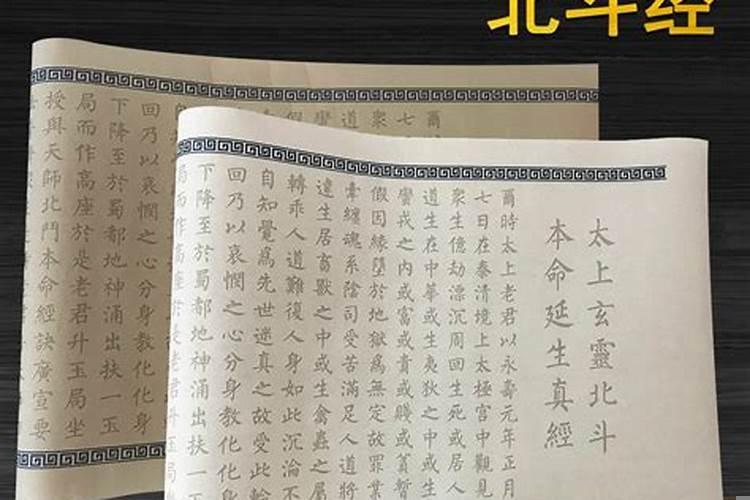 北斗经
太上玄靈北斗
本命延生真經
爾時太上老君以永壽元年正月
七日在泰清境上太極宮中觀見
衆生億劫漂沉周回生死或居人
道生在中華或生夷狄之中或生
蠻戎之内或富或貴或賤或暫
假因緣墮於地獄爲無定故罪業
牽纏魂系陰司受苦滿足人道將
違生居畜獸之中或生禽蟲之屬
轉乖人道難復人身如此沉淪不
自知覺爲先世迷真之故受此輪
回乃以哀憫之心分身教化化
下降至於蜀都地神涌出扶一
局而作高座於是老君升玉局
爾
七
衆
道
蠻
假
回乃以哀憫之心分身教化化身
下降至於蜀都地神涌出扶一玉
局而作高座於是老君升玉局坐
授與天師北鬥本命經訣廣宣要